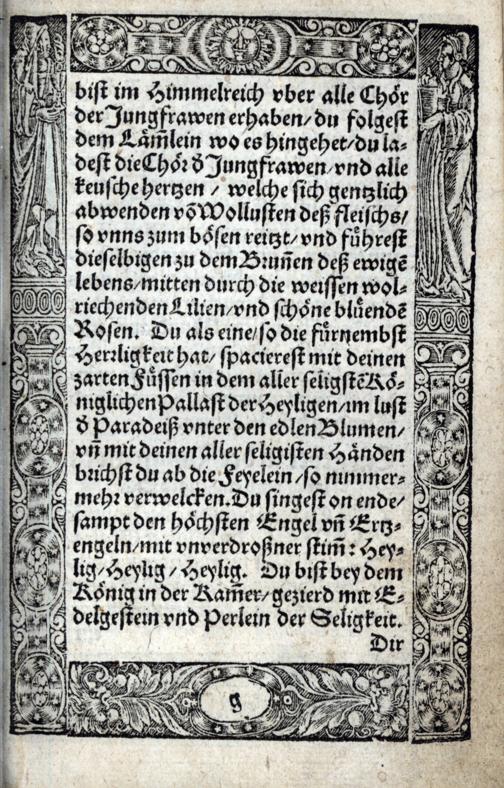 bist im Himmelreich vber alle Chör
der Jungfrawen erhaben/ du folgest
dem Läm̃lein wo es hingehet/ du la-
dest die Chör ð Jungfrawen/ vnd alle
keusche hertzen / welche sich gentzlich
abwenden võ Wollusten deß fleischs/
so vnns zum bösen reitzt/ vnd fuͤhrest
dieselbigen zu dem Brun̄en deß ewigẽ
lebens/ mitten durch die weissen wol-
riechenden Lilien/ vnd schöne bluͤendẽ
Rosen. Du als eine/ so die fuͤrnembst
Herrligkeit hat/ spacierest mit deinen
zarten Fuͤssen in dem aller seligstẽ Kö-
niglichen Pallast der Heyligen/ im lust
ð Paradeiß vnter den edlen Blumen/
vn̄ mit deinen aller seligisten Händen
brichst du ab die Feyelein/ so nimmer-
mehr verwelcken. Du singest on ende/
sampt den höchsten Engel vn̄ Ertz-
engeln/ mit vnverdroßner stim̄: Hey-
lig/ Heylig / Heylig. Du bist bey dem
König in der Kam̄er/ gezierd mit E-
delgestein vnd Perlein der Seligkeit.
Dir
g